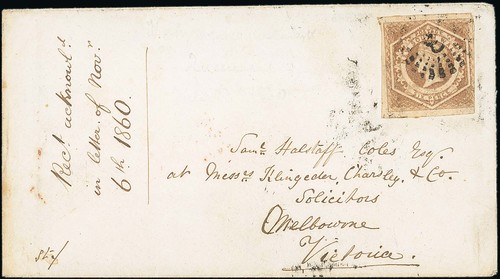 Rec.t acknowl.d
in letter of Nov.r
6th 1860.
Sam.l Halstaff Coles Esq.
at Mess.rs Klingender, Charsley, & Co
Solicitors
Melbourne
Victoria.